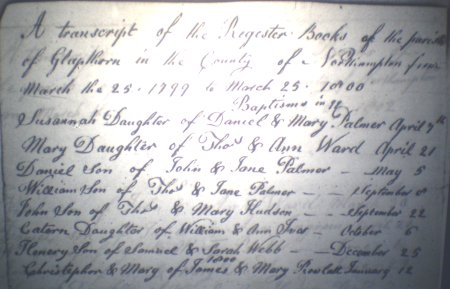 A transcript of the Regester Books of the parish
of Glapthorn in the County of Northampton from
March the 25 · 1799 to March 25 · 1800
Baptisms in it
Susannah Daughter of Daniel & Mary Palmer April 7th
Mary Daughter of Thos & Ann Ward April 21
Daniel Son of John & Jane Palmer — May 5
William Son of Thos & Jane Palmer — — September 8
John Son of Thos & Mary Hudson — — September 22
Catern Daughter of William & Ann — October 6
Henery Son of Samuel & Sarah Webb — December 25
1800
Christephor & Mary of James & Mary January 12